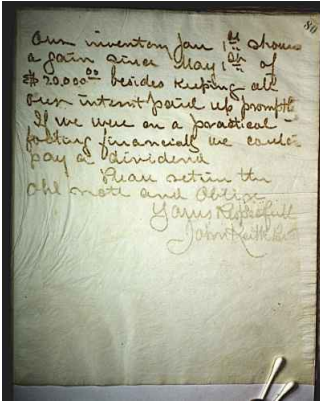 80
Our inventory Jan 1st shows
a gain since May 1st of
$20,000.00 besides Keeping all
our interst paid up promptl
If we were on a practical
footing financiall we could
pay a dividend
Please return the
old note and oblige
Yours Respectfull
John Keith